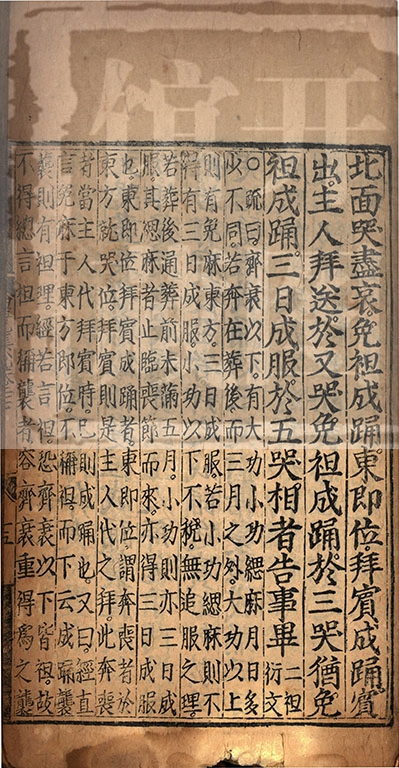 北面哭盡哀免袒成踊東即位拜賓成踊賓
出主人拜送於又哭免袒成踊於三哭猶免
袒成踊三日成服於五哭相者告事畢 二袒衍文
○疏曰齊衰以下有大功小功緦麻月日多
少不同若奔在葬後而三月之外大功以上
則有免麻東方三日成服若小功緦麻則不
得有三日成服小功以下不稅無追服之理
若葬後通葬前未滿五月小功則亦三日成
服其緦麻者止臨喪節而來亦得三日成服
也東即位拜賓成踊者東即位謂奔喪者於
東方就哭位拜賓則是主人代之拜此奔喪
者當主人代拜賓時己則成踊也又曰經直
言免麻于東方即位不襧袒而下云成踊襲
襲則有袒理經若言袒恐齊衰以下皆袒故
不得總言袒而襧襲者容齊衰重得為之襲